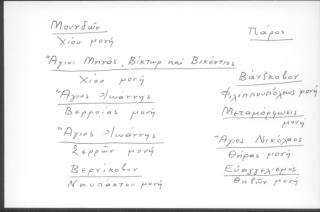 Μουνδῶν
Χίου μονή
Ἅγιοι Μηνᾶς, Βίκτωρ καί Βικέντιος
Χίου μονή
Ἅγιος Ἰωάννης
Βερροίας μονή
Ἅγιος Ἰωάννης
Σερρῶν μονή
Βερνίκοβον
Ναυπάκτου μονή
Πάρος
Βάνσκοβον
Φιλιππουπόλεως μονή
Μεταμόρφωσις
μονή
Ἅγιος Νικόλαος
Θήρας μονή
Εὐαγγελισμος
Θηβῶν μονή